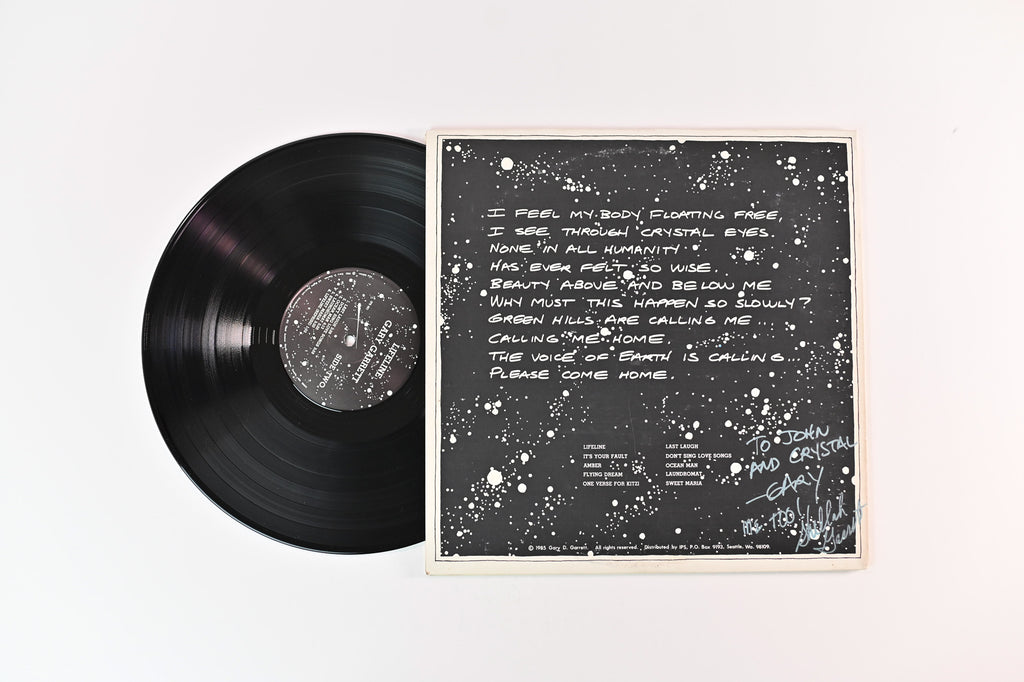 LIFELINE
GARY GARRETT
SIDE TWO
I FEEL MY BODY FLOATING FREE,
I SEE THROUGH CRYSTAL EYES.
NONE IN ALL HUMANITY
HAS EVER FELT SO WISE.
BEAUTY ABOVE AND BELOW ME
WHY MUST THIS HAPPEN SO SLOWLY?
GREEN HILLS ARE CALLING ME...
CALLING ME HOME.
THE VOICE OF EARTH IS CALLING...
PLEASE COME HOME.
LIFELINE
IT'S YOUR FAULT
AMBER
FLYING DREAM
ONE VERSE FOR KITZI
LAST LAUGH
DON'T SING LOVE SONGS
OCEAN MAN
LAUNDROMAT
SWEET MARIA
TO JOHN
AND CRYSTAL
—GARY
ME TOO!
© 1985 Gary D. Garrett. All rights reserved. Distributed by IPS, P.O. Box 9193, Seattle, Wa. 98109.